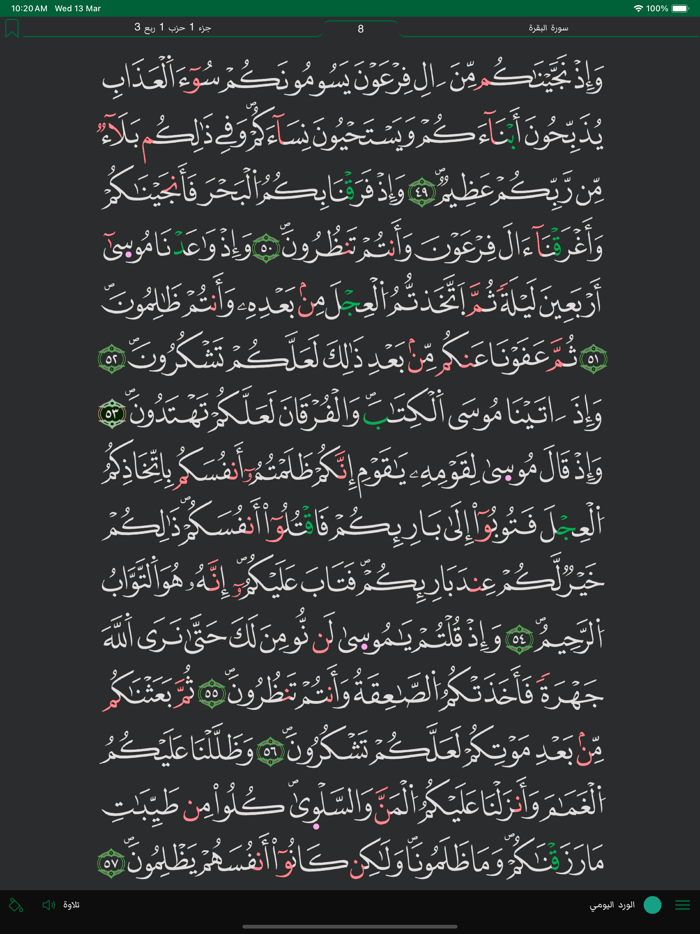 10:20 AM Wed 13 Mar 100%
سورة البقرة 8 جزء 1 حزب 1 ربع 3
وَإِذْ نَجَّيْنَٰكُم مِّنَ ءَالِ فِرْعَوْنَ يَسُومُونَكُمْ سُوٓءَ اَ۬لْعَذَابِ
يُذَبِّحُونَ أَبْنَآءَكُمْ وَيَسْتَحْيُونَ نِسَآءَكُمْۖ وَفِے ذَٰلِكُم بَلَآءٞ
مِّن رَّبِّكُمْ عَظِيمٞۖ ٤٩ وَإِذْ فَرَقْنَا بِكُمُ اُ۬لْبَحْرَ فَأَنجَيْنَٰكُمْ
وَأَغْرَقْنَآ ءَالَ فِرْعَوْنَ وَأَنتُمْ تَنظُرُونَۖ ٥٠ وَإِذْ وَٰعَدْنَا مُوس۪ىٰٓ
أَرْبَعِينَ لَيْلَةٗ ثُمَّ اَ۪تَّخَذتُّمُ اُ۬لْعِجْلَ مِنۢ بَعْدِهِۦ وَأَنتُمْ ظَٰلِمُونَۖ
٥١ ثُمَّ عَفَوْنَا عَنكُم مِّنۢ بَعْدِ ذَٰلِكَ لَعَلَّكُمْ تَشْكُرُونَۖ ٥٢
وَإِذَ ءَاتَيْنَا مُوسَى اَ۬لْكِتَٰبَۖ وَالْفُرْقَانَ لَعَلَّكُمْ تَهْتَدُونَۖ ٥٣
وَإِذْ قَالَ مُوس۪ىٰ لِقَوْمِهِۦ يَٰقَوْمِ إِنَّكُمْ ظَلَمْتُمُۥٓ أَنفُسَكُم بِاتِّخَاذِكُمُ
اُ۬لْعِجْلَ فَتُوبُوٓاْ إِلَىٰ بَارِئِكُمْ فَاقْتُلُوٓاْ أَنفُسَكُمْۖ ذَٰلِكُمْ
خَيْرٞ لَّكُمْ عِندَ بَارِئِكُمْۖ فَتَابَ عَلَيْكُمُۥٓۖ إِنَّهُۥ هُوَ اَ۬لتَّوَّابُ
اُ۬لرَّحِيمُۖ ٥٤ وَإِذْ قُلْتُمْ يَٰمُوس۪ىٰ لَن نُّومِنَ لَكَ حَتَّىٰ نَرَى اَ۬للَّهَ
جَهْرَةٗ فَأَخَذَتْكُمُ اُ۬لصَّٰعِقَةُ وَأَنتُمْ تَنظُرُونَۖ ٥٥ ثُمَّ بَعَثْنَٰكُم
مِّنۢ بَعْدِ مَوْتِكُمْ لَعَلَّكُمْ تَشْكُرُونَۖ ٥٦ وَظَلَّلْنَا عَلَيْكُمُ
اُ۬لْغَمَٰمَ وَأَنزَلْنَا عَلَيْكُمُ اُ۬لْمَنَّ وَالسَّلْو۪ىٰۖ كُلُواْ مِن طَيِّبَٰتِ
مَا رَزَقْنَٰكُمْۖ وَمَا ظَلَمُونَاۖ وَلَٰكِن كَانُوٓاْ أَنفُسَهُمْ يَظْلِمُونَۖ ٥٧
الورد اليومي تلاوة